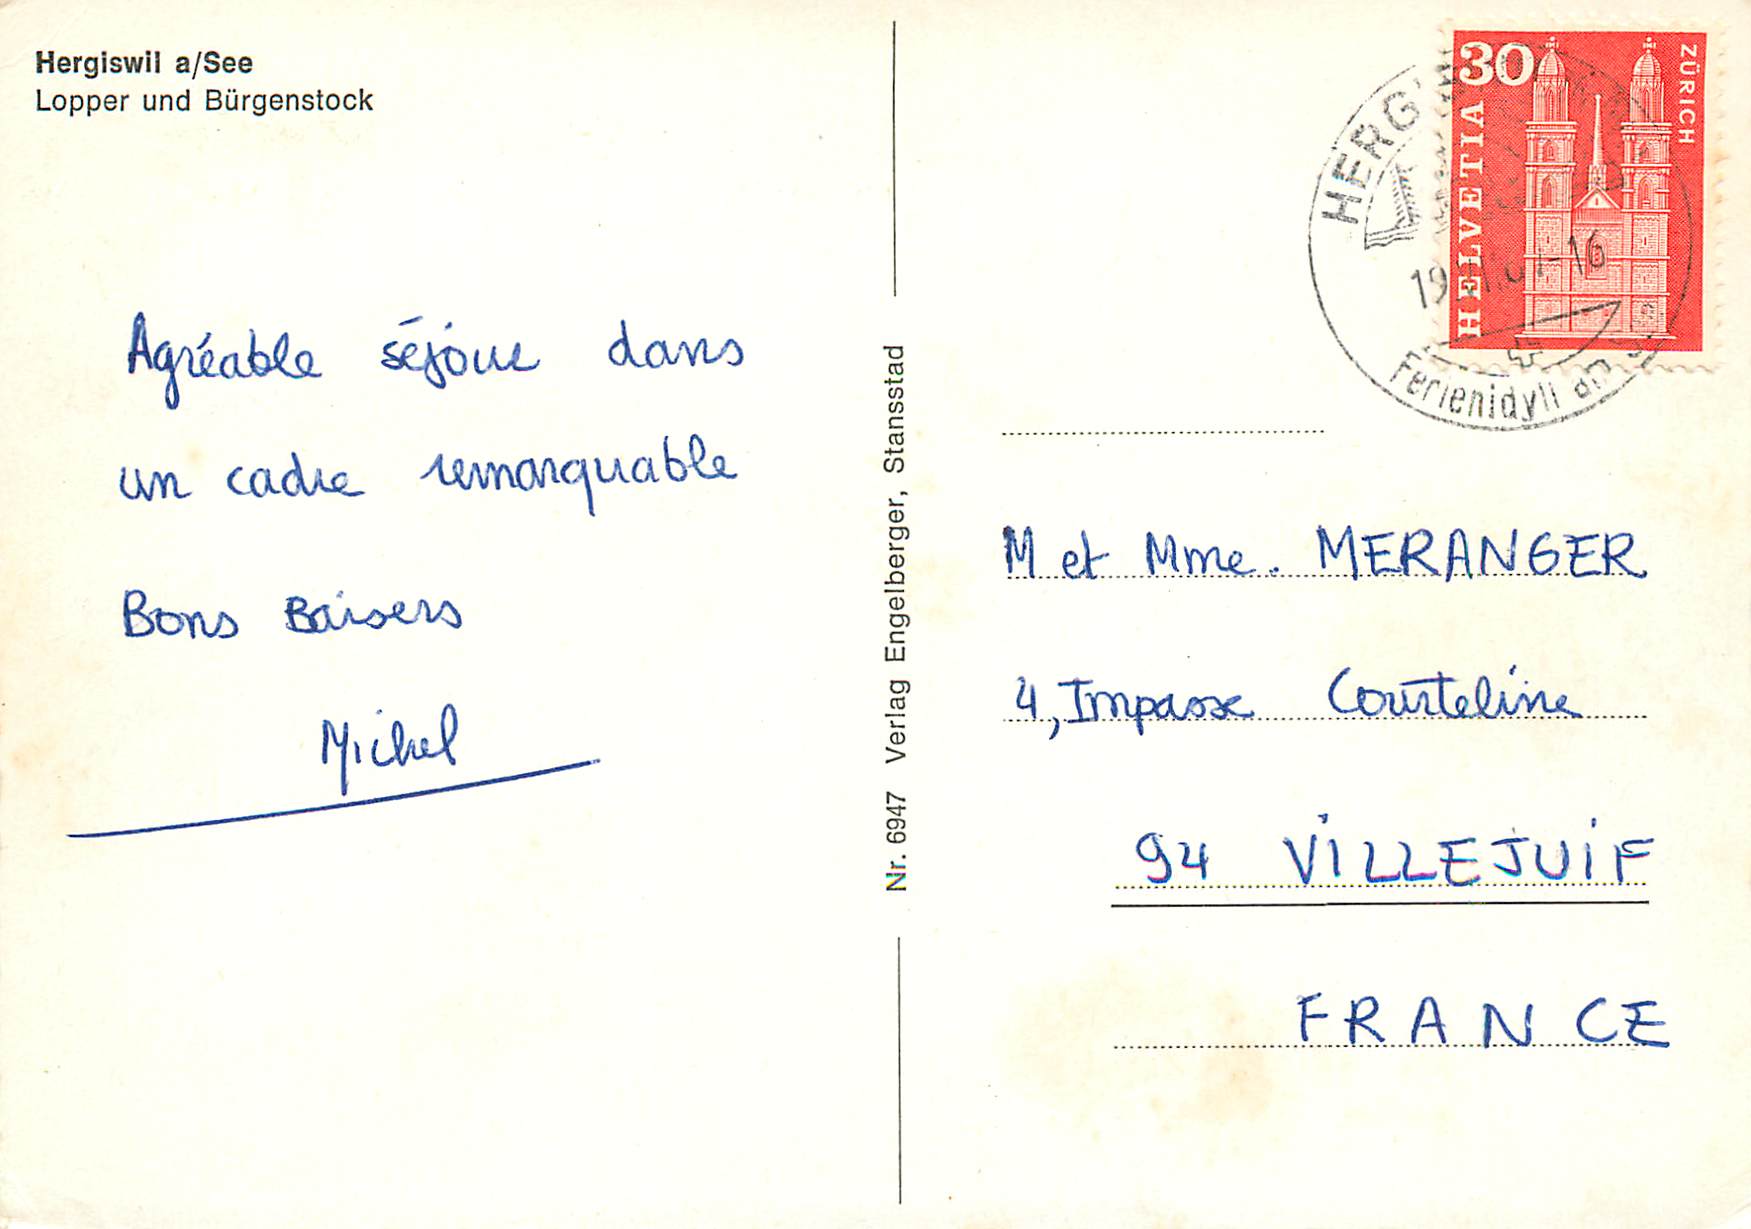 Hergiswil a/See
Lopper und Bürgenstock
Agréable séjour dans
un cadre remarquable
Bons Baisers
Michel
Nr. 6947 Verlag Engelberger, Stansstad
30
HELVETIA
ZÜRICH
Ferienidyll am
M et Mme. MERANGER
4, Impasse Courteline
94 VILLEJUIF
FRANCE